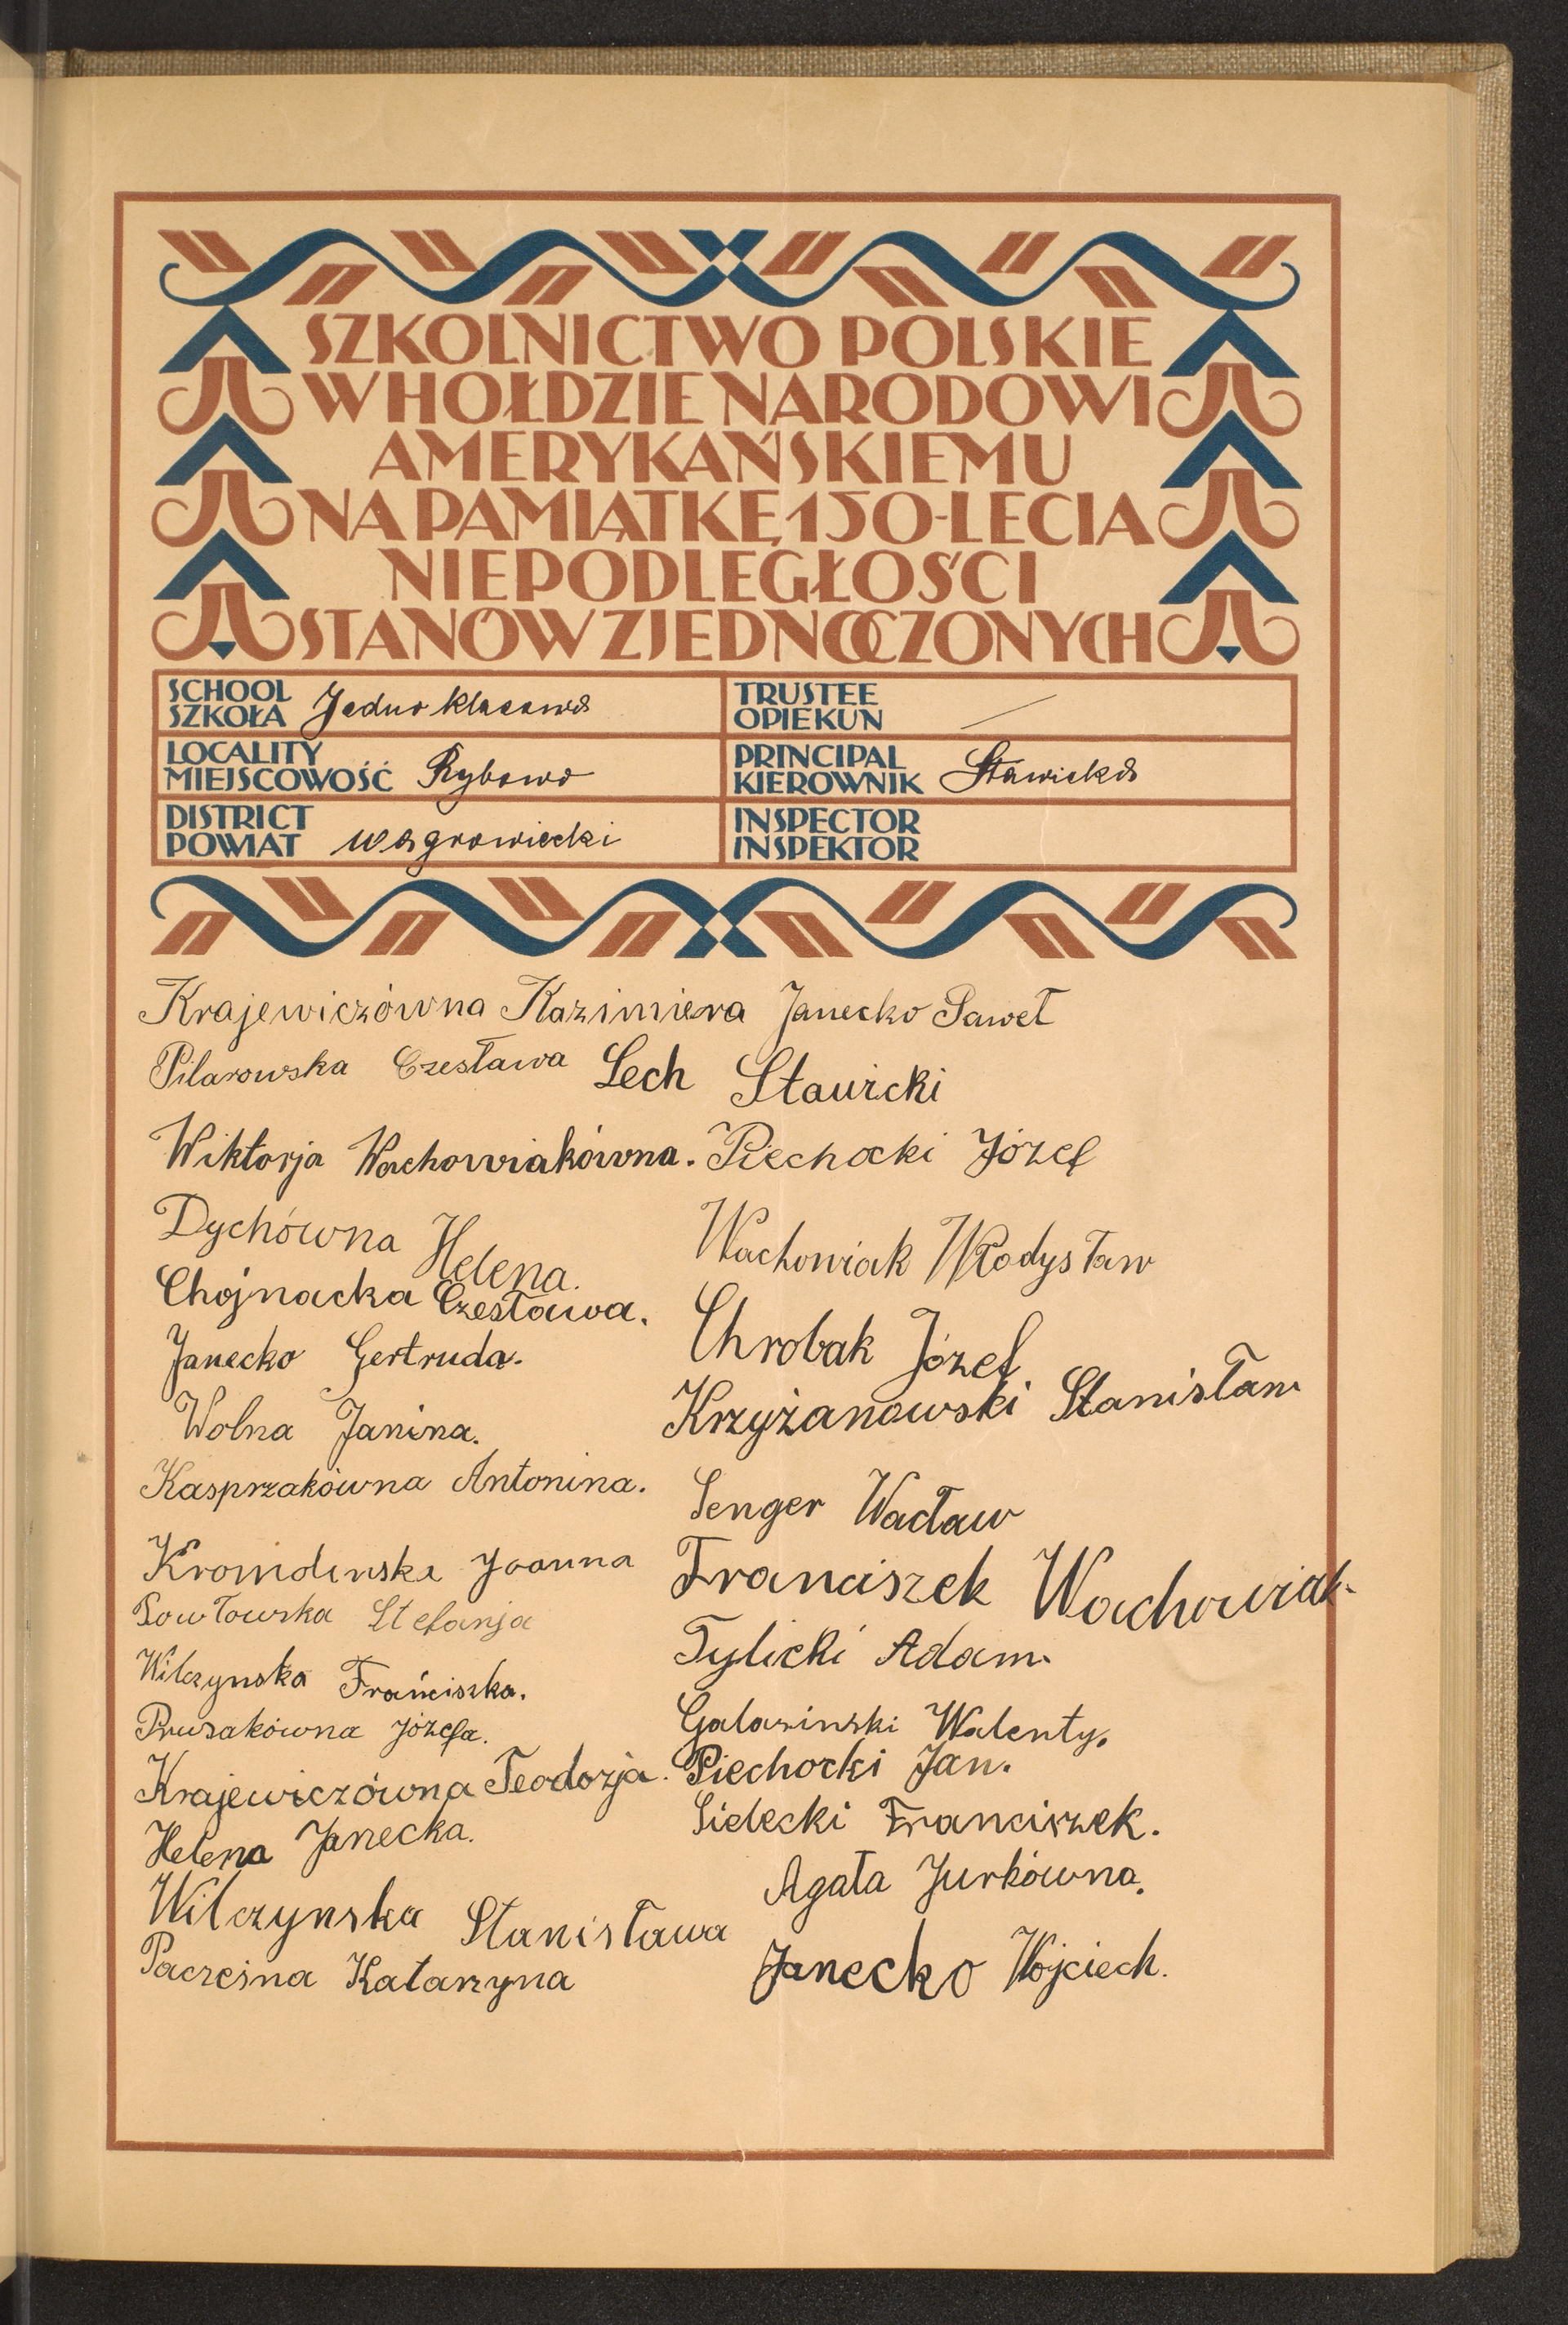 SZKOLNICTWO POLSKIE
W HOŁDZIE NARODOWI
AMERYKAŃSKIEMU
NA PAMIĄTKĘ 150-LECIA
NIEPODLEGŁOŚCI
STANÓW ZJEDNOCZONYCH
SCHOOL
SZKOŁA Jednoklasowa
TRUSTEE
OPIEKUN
LOCALITY
MIEJSCOWOŚĆ Rybowo
PRINCIPAL
KIEROWNIK Stawicka
DISTRICT
POWIAT wągrowiecki
INSPECTOR
INSPEKTOR
Krajewiczówna Kazimiera
Pilarowska Czesława
Wiktorja Wachowiakówna.
Dychówna Helena.
Chojnacka Czesława.
Janecko Gertruda.
Wolna Janina.
Kasprzakówna Antonina.
Joanna
Stefanja
Wilczynska Franciszka.
Prusakówna Józefa.
Krajewiczówna Teodozja.
Helena Janecka.
Wilczynska Stanisława
Paczesna Katarzyna
Janecko Paweł
Lech Stawicki
Piechocki Józef
Wachowiak Włodysław
Chrobak Józef
Krzyżanowski Stanisław
Senger Wacław
Franciszek Wachowiak.
Tylicki Adam.
Galasinski Walenty.
Piechocki Jan.
Sielecki Franciszek.
Agata Jurkówna.
Janecko Wojciech.